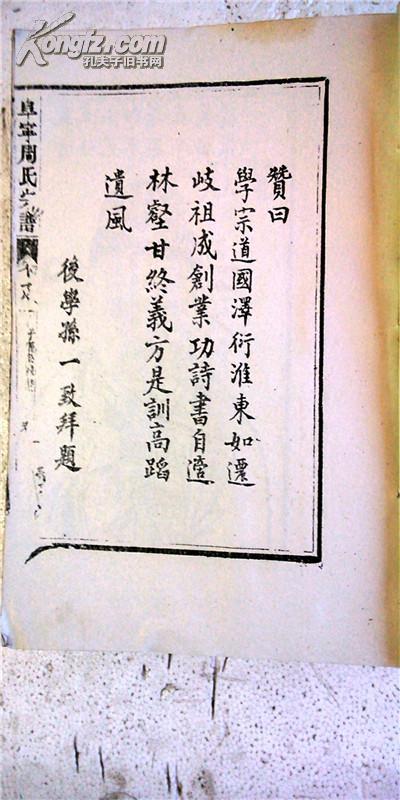 Kongfz.com
孔夫子旧书网
贊曰
學宗道國澤衍淮東如遷
岐祖成創業功詩書自澹
林壑甘終義方是訓高蹈
遺風
後學孫一致拜題
阜寧周氏宗譜